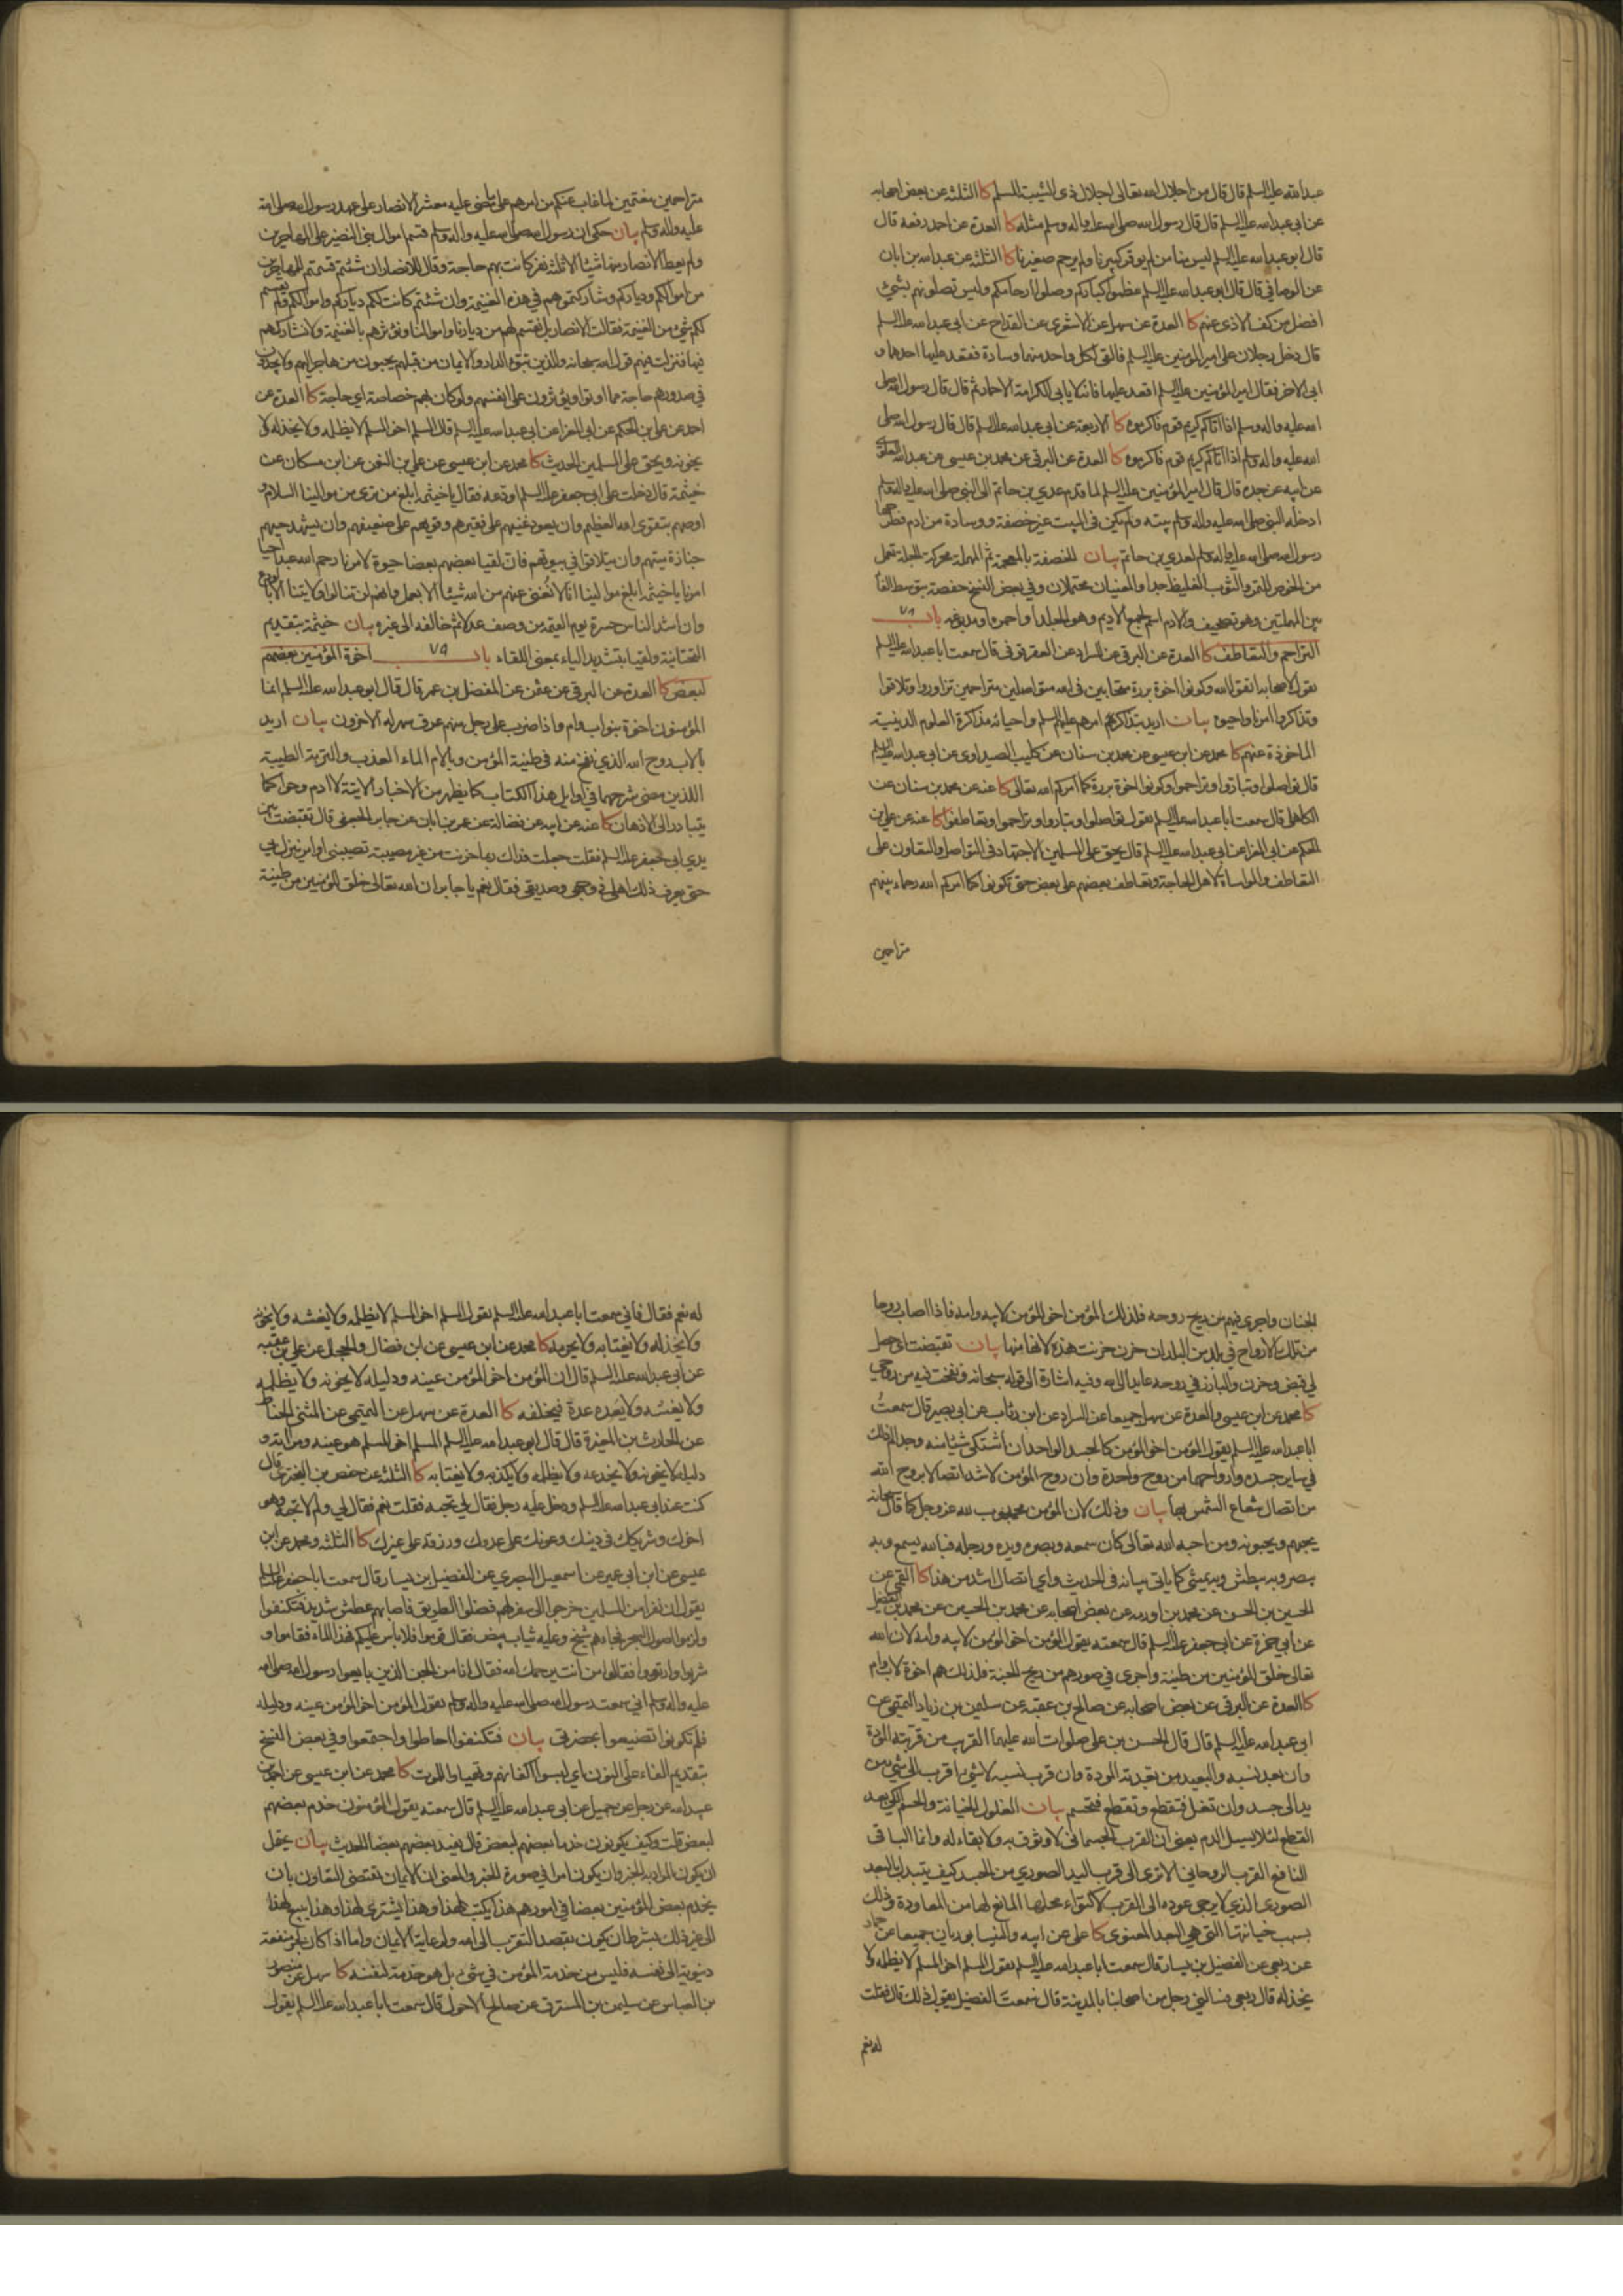 عبدالله عليه السلم قال قال من اجلال الله تعالى اجلال ذى الشيبة المسلم كا الثلثة عن بعض اصحابه
عن ابى عبدالله عليه السلم قال قال رسول الله صلى الله عليه واله وسلم مثله كا العدة عن احمد رفعه قال
قال ابو عبدالله عليه السلم ليس منا من لم يوقر كبيرنا ولم يرحم صغيرنا كا الثلثة عن عبدالله بن ابان
عن الوصافى قال قال ابو عبدالله عليه السلم عظموا كباركم وصلوا ارحامكم وليس تصلونهم بشئ
افضل من كف الاذى عنهم كا العدة عن سهل عن الاشعرى عن القداح عن ابى عبدالله عليه السلم
قال دخل رجلان على امير المؤمنين عليه السلم فالقى لكل واحد منهما وسادة فقعد عليها احدهما و
ابى الاخر فقال امير المؤمنين عليه السلم اقعد عليها فانه لا يابى الكرامة الا حمار ثم قال قال رسول الله صلى
الله عليه واله وسلم اذا اتاكم كريم قوم فاكرموه كا الاربعة عن ابى عبدالله عليه السلم قال قال رسول الله صلى
الله عليه واله وسلم اذا اتاكم كريم قوم فاكرموه كا العدة عن البرقى عن محمد بن عيسى عن عبدالله العلوى
عن ابيه عن جده قال قال امير المؤمنين عليه السلم لما قدم عدي بن حاتم الى النبى صلى الله عليه واله وسلم
ادخله النبى صلى الله عليه واله وسلم بيته ولم يكن فى البيت غير خصفة ووسادة من ادم فطرحها
رسول الله صلى الله عليه واله وسلم لعدي بن حاتم بيان الخصفة بالمعجمة ثم المهملة محركة الجلة تعمل
من الخوص للتمر والثوب الغليظ جدا والمعنيان محتملان وفى بعض النسخ حفصة بتوسط الفا
بين المهملتين وهو تصحيف والادم اسم لجمع الاديم وهو الجلد او احمره او مدبوغه باب ٧٨
التراحم والتعاطف كا العدة عن البرقى عن السراد عن العقرقوفى قال سمعت ابا عبدالله عليه السلم
يقول لاصحابه اتقوا الله وكونوا اخوة بررة متحابين فى الله متواصلين متراحمين تزاوروا وتلاقوا
وتذاكروا امرنا واحيوه بيان اريد بتذاكرهم امرهم عليهم السلم واحيائه مذاكرة العلوم الدينية
الماخوذة عنهم كا محمد عن ابن عيسى عن محمد بن سنان عن كليب الصيداوى عن ابى عبدالله عليه السلم
قال تواصلوا وتباروا وتراحموا وكونوا اخوة بررة كما امركم الله تعالى كا عنه عن محمد بن سنان عن
الكاهلى قال سمعت ابا عبدالله عليه السلم يقول تواصلوا وتباروا وتراحموا وتعاطفوا كا عنه عن على بن
الحكم عن ابى المغرا عن ابى عبدالله عليه السلم قال يحق على المسلمين الاجتهاد فى التواصل والتعاون على
التعاطف والمواساة لاهل الحاجة وتعاطف بعضهم على بعض حتى تكونوا كما امركم الله رحماء بينهم
متراحمين
متراحمين مغتمين لما غاب عنكم من امرهم على ما مضى عليه معشر الانصار على عهد رسول الله صلى الله
عليه واله وسلم بيان حكى ان رسول الله صلى الله عليه واله وسلم قسم اموال بنى النضير على المهاجرين
ولم يعط الانصار منها شيئا الا ثلثة نفر كانت بهم حاجة وقال للانصار ان شئتم قسمتم للمهاجرين
من اموالكم ودياركم وشاركتموهم فى هذه الغنيمة وان شئتم كانت لكم دياركم واموالكم ولم يقسم
لكم شئ من الغنيمة فقالت الانصار بل نقسم لهم من ديارنا واموالنا ونؤثرهم بالغنيمة ولا نشاركهم
فيها فنزلت فيهم قول الله سبحانه والذين تبوؤ الدار والايمان من قبلهم يحبون من هاجر اليهم ولا يجدون
فى صدورهم حاجة مما اوتوا ويؤثرون على انفسهم ولو كان بهم خصاصة اى حاجة كا العدة عن
احمد عن على بن الحكم عن ابى المغرا عن ابى عبدالله عليه السلم قال المسلم اخو المسلم لا يظلمه ولا يخذله ولا
يخونه ويحق على المسلمين الحديث كا محمد عن ابن عيسى عن على بن النعمن عن ابن مسكان عن
خيثمة قال دخلت على ابى جعفر عليه السلم اودعه فقال يا خيثمة ابلغ من ترى من موالينا السلام و
اوصهم بتقوى الله العظيم وان يعود غنيهم على فقيرهم وقويهم على ضعيفهم وان يشهد حيهم
جنازة ميتهم وان يتلاقوا فى بيوتهم فان لقيا بعضهم بعضا حيوة لامرنا رحم الله عبدا احيا
امرنا يا خيثمة ابلغ موالينا انا لا نغنى عنهم من الله شيئا الا بعمل وانهم لن ينالوا ولايتنا الا بالورع
وان اشد الناس حسرة يوم القيمة من وصف عدلا ثم خالفه الى غيره بيان خيثمة بتقديم
التحتانية ولقيا بتشديد الياء بمعنى اللقاء باب ٧٩ اخوة المؤمنين بعضهم
لبعض كا العدة عن البرقى عن عثمن عن المفضل بن عمر قال قال ابو عبدالله عليه السلم انما
المؤمنون اخوة بنو اب وام واذا ضرب على رجل منهم عرق سهر له الاخرون بيان اريد
بالاب روح الله الذي نفخ منه فى طينة المؤمن وبالام الماء العذب والتربة الطيبة
اللذين مضى شرحهما فى اوايل هذا الكتاب كما يظهر من الاخبار الاتية لا ادم وحوا كما
يتبادر الى الاذهان كا عنه عن ابيه عن فضالة عن عمر بن ابان عن جابر الجعفى قال تقبضت بين
يدي ابى جعفر عليه السلم فقلت جعلت فداك ربما حزنت من غير مصيبة تصيبنى او امر ينزل بى
حتى يعرف ذلك اهلى فى وجهى وصديقى فقال نعم يا جابر ان الله تعالى خلق المؤمنين من طينة
الجنان واجرى فيهم من ريح روحه فلذلك المؤمن اخو المؤمن لابيه وامه فاذا اصاب روحا
من تلك الارواح فى بلد من البلدان حزن حزنت هذه لانها منها بيان تقبضت اى حصل
لى قبض وحزن والبارز فى روحه عايد الى الله وفيه اشارة الى قوله سبحانه ونفخت فيه من روحي
كا محمد عن ابن عيسى والعدة عن سهل جميعا عن السراد عن ابن رئاب عن ابى بصير قال سمعت
ابا عبدالله عليه السلم يقول المؤمن اخو المؤمن كالجسد الواحد ان اشتكى شيئا منه وجد الم ذلك
فى ساير جسده وارواحهما من روح واحدة وان روح المؤمن لاشد اتصالا بروح الله
من اتصال شعاع الشمس بها بيان وذلك لان المؤمن محبوب لله عز وجل كما قال سبحانه
يحبهم ويحبونه ومن احبه الله تعالى كان سمعه وبصره ويده ورجله فبالله يسمع وبه
يبصر وبه يبطش وبه يمشى كما ياتى بيانه فى الحديث واى اتصال اشد من هذا كا القمى عن
الحسين بن الحسن عن محمد بن اورمه عن بعض اصحابه عن محمد بن الحسين عن محمد بن الفضيل
عن ابى حمزة عن ابى جعفر عليه السلم قال سمعته يقول المؤمن اخو المؤمن لابيه وامه لان الله
تعالى خلق المؤمنين من طينة واجرى فى صورهم من ريح الجنة فلذلك هم اخوة لاب وام
كا العدة عن البرقى عن بعض اصحابه عن صالح بن عقبة عن سليمن بن زياد التميمى عن
ابى عبدالله عليه السلم قال قال الحسن بن على صلوات الله عليهما القريب من قربته المودة
وان بعد نسبه والبعيد من بعدته المودة وان قرب نسبه لا شئ اقرب الى شئ من
يد الى جسد وان تغل فتقطع وتقطع فتحسم بيان الغلول الخيانة والحسم الكى بعد
القطع لئلا يسيل الدم يعنى ان القرب الجسمانى لا وثوق به ولا بقاء له وانما الباقى
النافع القرب الروحانى الا ترى الى قرب اليد الصورى من الجسد كيف يتبدل بالبعد
الصورى الذي لا يرجى عوده الى القرب لاكتواء محلها المانع لها من المعاودة وذلك
بسبب خيانتها التى هى البعد المعنوى كا على عن ابيه والنيسابوريان جميعا عن حماد
عن ربعى عن الفضيل بن يسار قال سمعت ابا عبدالله عليه السلم يقول المسلم اخو المسلم لا يظلمه ولا
يخذله قال ربعى فسالنى رجل من اصحابنا بالمدينة قال سمعت الفضيل يقول ذلك قال فقلت
له نعم
له نعم فقال فانى سمعت ابا عبدالله عليه السلم يقول المسلم اخو المسلم لا يظلمه ولا يغشه ولا يخونه
ولا يخذله ولا يغتابه ولا يحرمه كا محمد عن ابن عيسى عن ابن فضال والحجال عن على بن عقبه
عن ابى عبدالله عليه السلم قال ان المؤمن اخو المؤمن عينه ودليله لا يخونه ولا يظلمه
ولا يغشه ولا يعده عدة فيخلفه كا العدة عن سهل عن التميمى عن المثنى الحناط
عن الحارث بن المغيرة قال قال ابو عبدالله عليه السلم المسلم اخو المسلم هو عينه ومراته و
دليله لا يخونه ولا يخدعه ولا يظلمه ولا يكذبه ولا يغتابه كا الثلثة عن حفص بن البخترى قال
كنت عند ابى عبدالله عليه السلم ودخل عليه رجل فقال لى تحبه فقلت نعم فقال لى ولم لا تحبه وهو
اخوك وشريكك فى دينك وعونك على عدوك ورزقه على غيرك كا الثلثة ومحمد عن ابن
عيسى عن ابن ابى عمير عن اسمعيل البصرى عن الفضيل بن يسار قال سمعت ابا جعفر عليه السلم
يقول ان نفرا من المسلمين خرجوا الى سفر لهم فضلوا الطريق فاصابهم عطش شديد فتكنفوا
ولزموا اصول الشجر فجاءهم شيخ وعليه ثياب بيض فقال قوموا فلا باس عليكم فهذا الماء فقاموا و
شربوا وارتووا فقالوا من انت يرحمك الله فقال انا من الجن الذين بايعوا رسول الله صلى الله
عليه واله وسلم انى سمعت رسول الله صلى الله عليه واله وسلم يقول المؤمن اخو المؤمن عينه ودليله
فلم تكونوا تضيعوا بحضرتى بيان فتكنفوا احاطوا واجتمعوا وفى بعض النسخ
بتقديم الفاء على النون اى لبسوا اكفانهم وتهياوا للموت كا محمد عن ابن عيسى عن احمد بن
عبدالله عن رجل عن جميل عن ابى عبدالله عليه السلم قال سمعته يقول المؤمنون خدم بعضهم
لبعض قلت وكيف يكونون خدما بعضهم لبعض قال يفيد بعضهم بعضا الحديث بيان يحتمل
ان يكون المراد به الخبر وان يكون امرا فى صورة الخبر والمعنى ان الايمان يقتضى التعاون بان
يخدم بعض المؤمنين بعضا فى امورهم هذا يكتب لهذا وهذا يشترى لهذا وهذا يبيع لهذا
الى غير ذلك بشرط ان يكون بقصد التقرب الى الله ولرعاية الايمان واما اذا كان يجر منفعة
دنيوية الى نفسه فليس من خدمة المؤمن فى شئ بل هو خدمة لنفسه كا سهل عن منصور
بن العباس عن سليمن بن المسترق عن صالح الاحول قال سمعت ابا عبدالله عليه السلم يقول